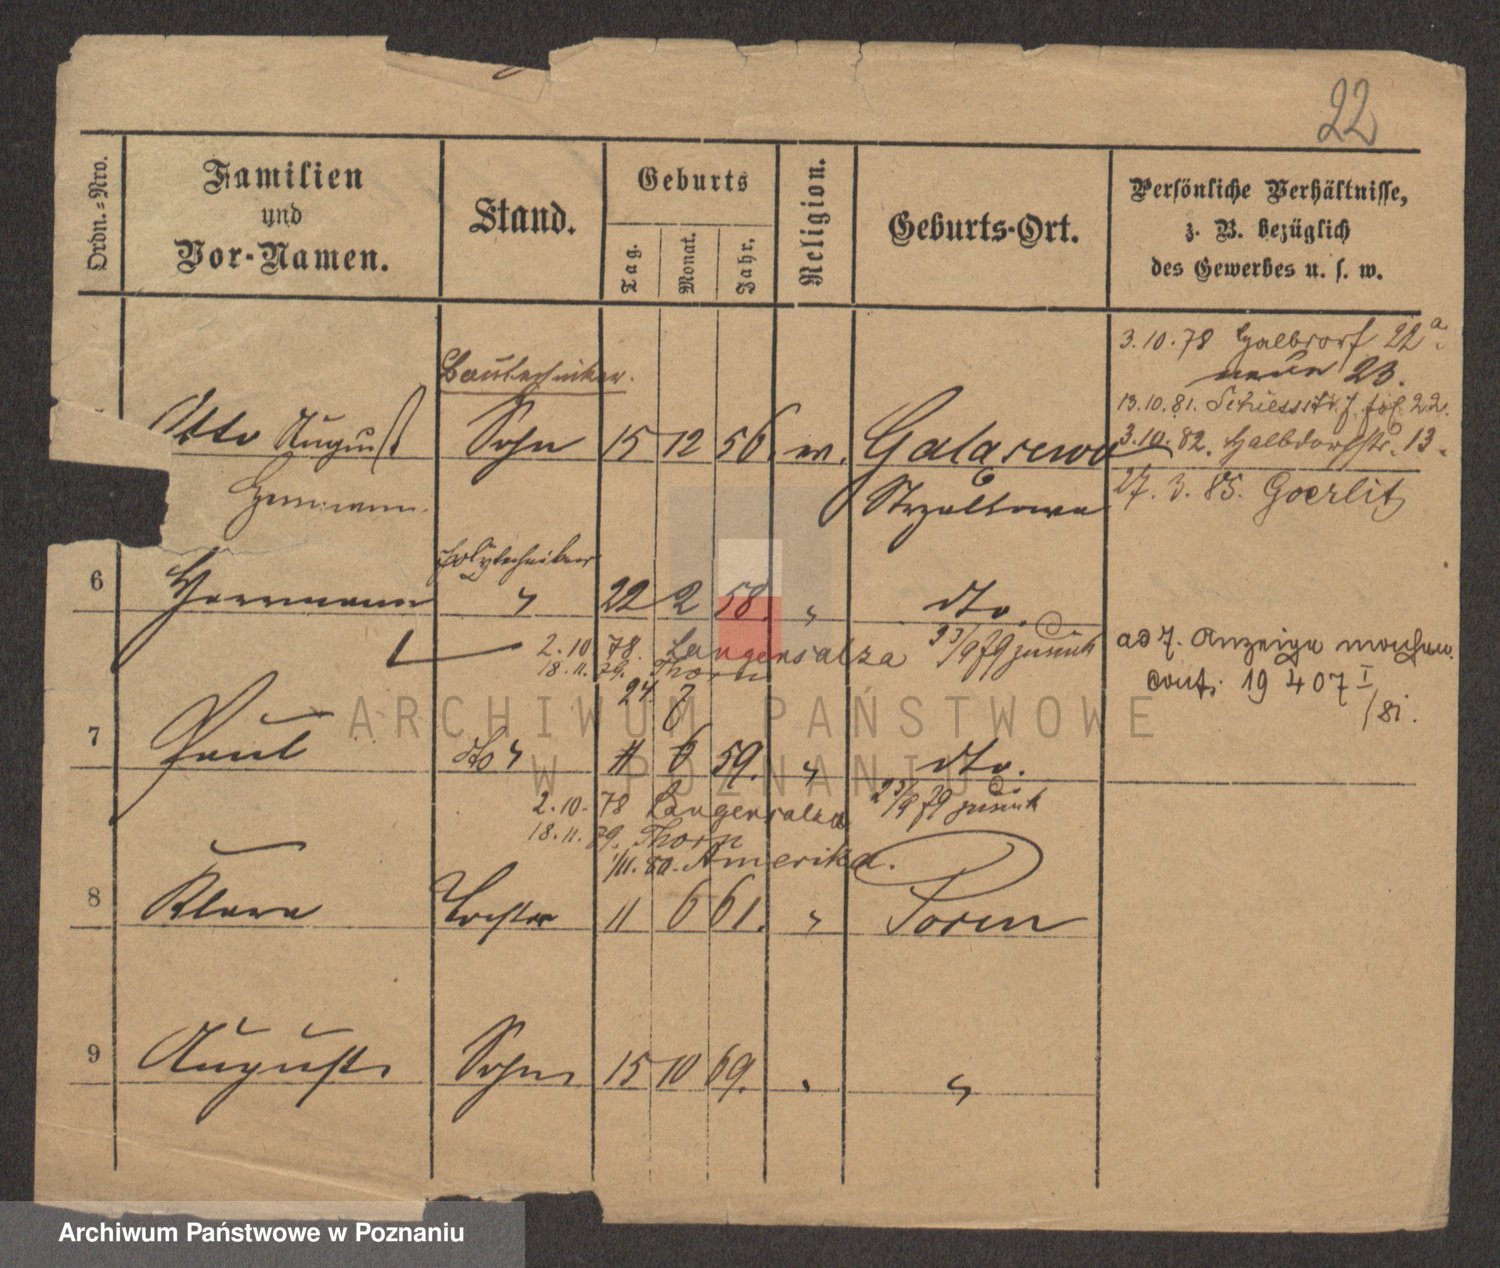 22
Ordn.-Nro.
Familien
und
Vor-Namen.
Stand.
Geburts
Tag.
Monat.
Jahr.
Religion.
Geburts-Ort.
Persönliche Verhältnisse,
z. B. bezüglich
des Gewerbes u. s. w.
3.10.78 Halbdorf 22a
23.
Bautechniker.
13.10.81. Schiessstr. 7
Otto August Sohn 15 12 56. ev.
3.10.82. Halbdorfstr. 13.
Hermann
27. 3. 85. Goerlitz
Polytechniker
6 Herrmann " 22 2 58. " dto.
2.10.78. Langensalza 23/9 79 zurück
18.11.79. Thorn
ad 7. Anzeige
conf. 19 407 I
/81.
24. 7
ARCHIWUM PAŃSTWOWE
W POZNANIU
7 Paul dto " 11 6 59. " dto.
2.10.78 Langensalza 23/9 79 zurück
18.11.79. Thorn
1/11.80. Amerika.
8 Klara Tochter 11 6 61. "
9 August Sohn 15 10 69. "
Archiwum Państwowe w Poznaniu